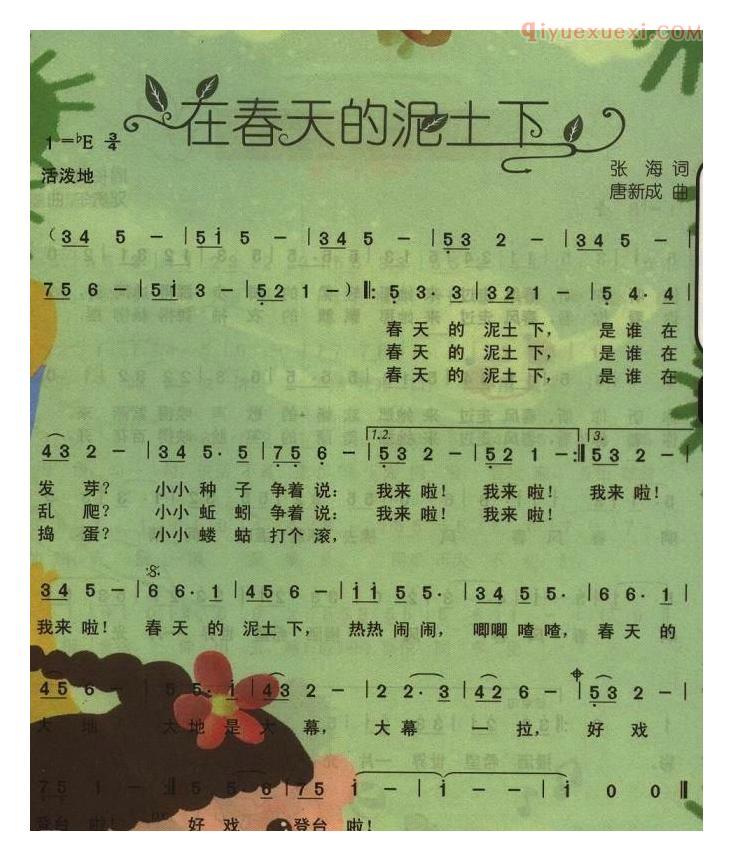 qiyuexuexi.COM
在春天的泥土下
1=♭E 3/4
活泼地
张 海 词
唐新成 曲
(3 4 5 - | 5 1 5 - | 3 4 5 - | 5 3 2 - | 3 4 5 - |
7 5 6 - | 5 1 3 - | 5 2 1 - ) ‖: 5 3 · 3 | 3 2 1 - | 5 4 · 4 |
春 天 的 泥土 下， 是 谁 在
春 天 的 泥土 下， 是 谁 在
春 天 的 泥土 下， 是 谁 在
1.2. 3.
4 3 2 - | 3 4 5 · 5 | 7 5 6 - | 5 3 2 - | 5 2 1 - :‖ 5 3 2 - |
发 芽？ 小小 种 子 争着 说： 我来 啦！ 我来 啦！ 我来 啦！
乱 爬？ 小小 蚯 蚓 争着 说： 我来 啦！ 我来 啦！
捣 蛋？ 小小 蝼 蛄 打个 滚，
3 4 5 - | 6 6 · 1 | 4 5 6 - | 1 1 5 5 · | 3 4 5 5 · | 6 6 · 1 |
我来 啦！ 春 天 的 泥土 下， 热热 闹闹， 唧唧 喳喳， 春 天 的
4 5 6 - | 5 5 · 1 | 4 3 2 - | 2 2 · 3 | 4 2 6 - | 5 3 2 - |
大 地！ 大 地 是 大 幕， 大 幕 一 拉， 好 戏
7 5 1 - :‖ 5 5 6 | 7 5 1 - | 1 - - | 1 0 0 ‖
登台 啦！ 好 戏 登台 啦！